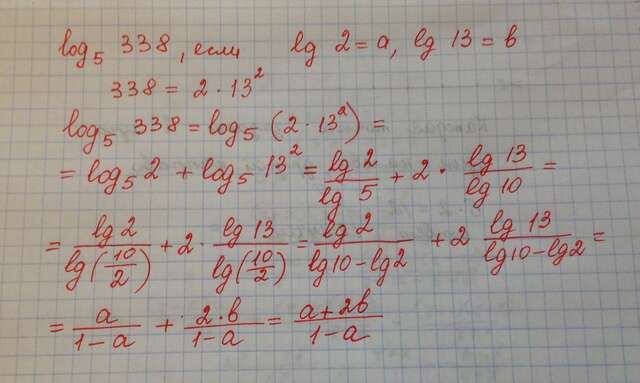 log₅ 338, если lg 2 = a, lg 13 = b
338 = 2 · 13²
log₅ 338 = log₅ (2 · 13²) =
= log₅ 2 + log₅ 13² = lg 2 / lg 5 + 2 · lg 13 / lg 10 =
= lg 2 / lg(10/2) + 2 · lg 13 / lg(10/2) = lg 2 / lg10 – lg2 + 2 lg 13 / lg10 – lg2 =
= a / 1 – a + 2 · b / 1 – a = a + 2b / 1 – a